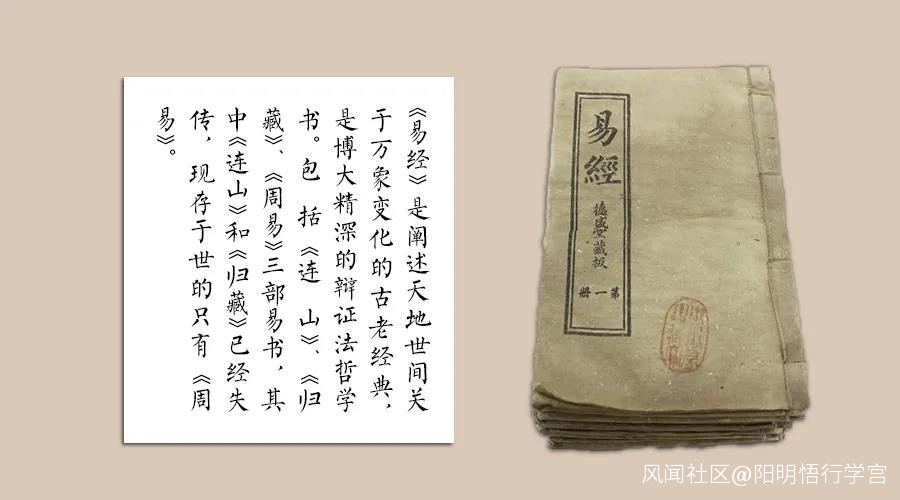 《易经》是阐述天地世间关
于万象变化的古老经典，
是博大精深的辩证法哲学
书。包 括《连 山》、《归
藏》、《周易》三部易书，其
中《连山》和《归藏》已经失
传，现存于世的只有《周
易》。
易經
德盛堂藏板
第一册
风闻社区@阳明悟行学宫